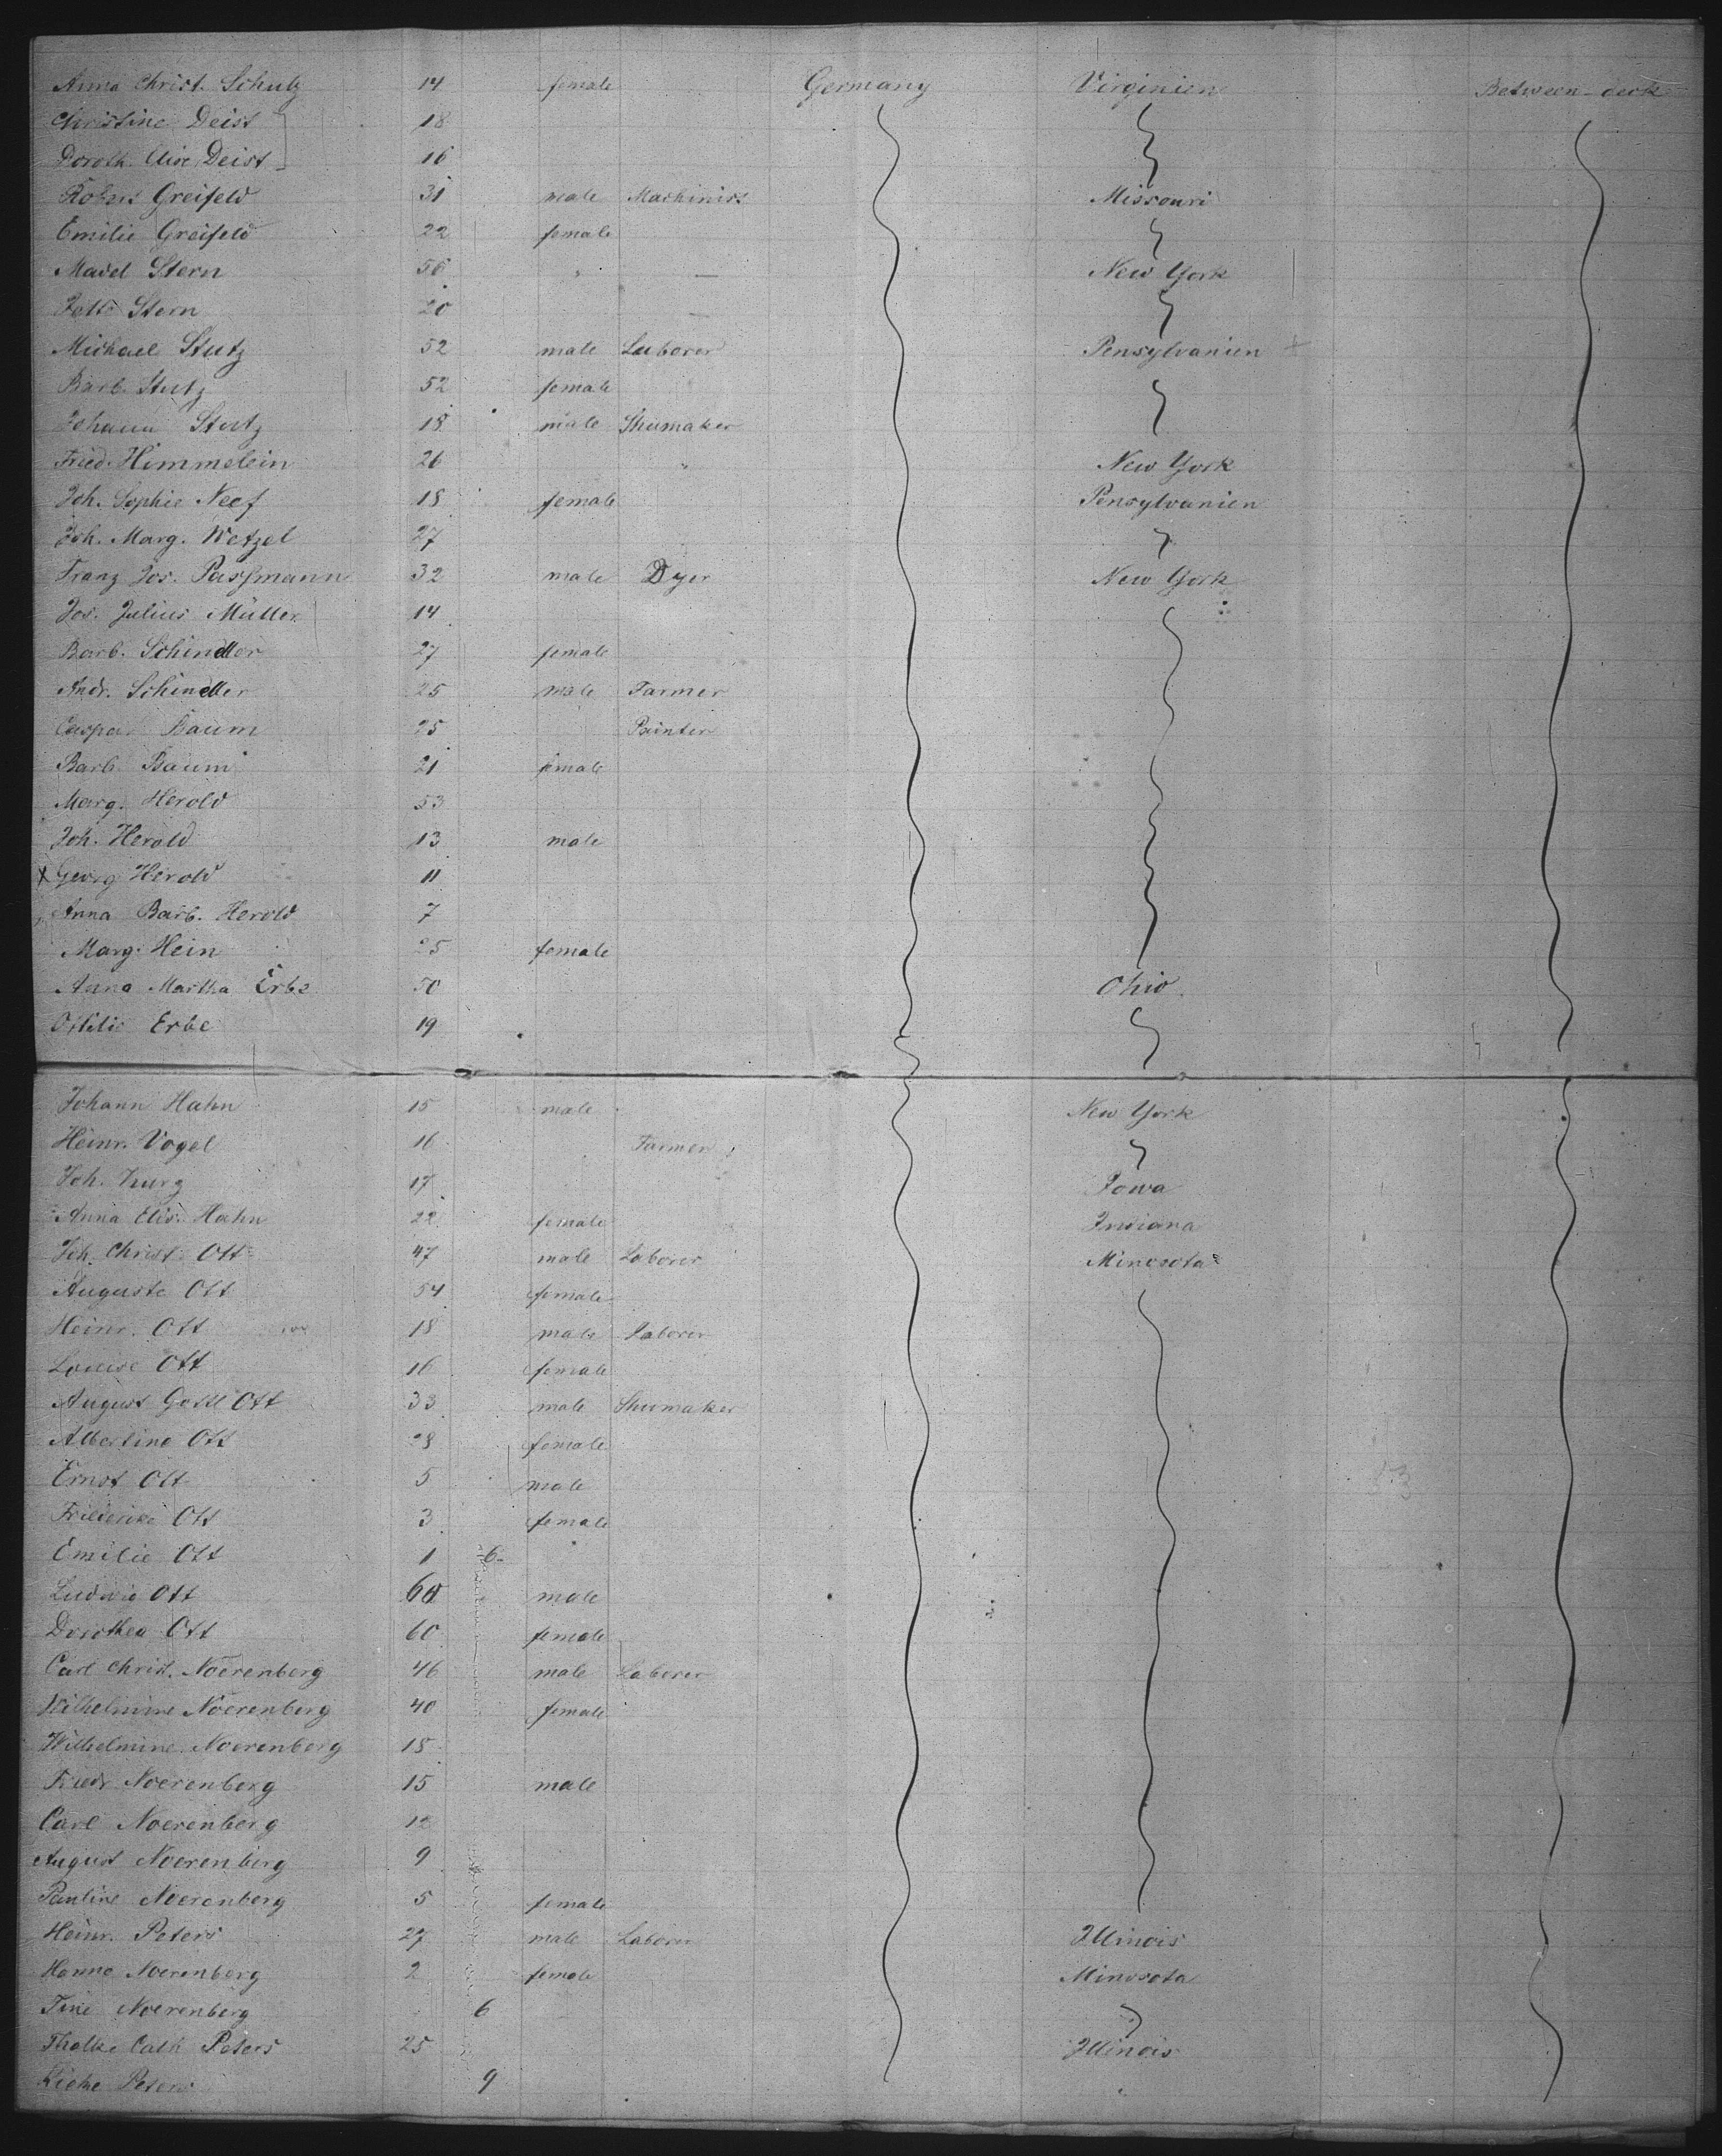 Anna Christ. Schulz 14 female Germany Virginien Between-deck
Christine Deist 18
Doroth. Elise Deist 16
Robert Greifeld 31 male Machinist Missouri
Emilie Greifeld 22 female
Madel Stern 56 " — New York
Jette Stern 20 —
Michael Stutz 52 male Laborer Pensylvanien
Barb. Stutz 52 female
Johann Stutz 18 male Shumaker
Fried. Himmelein 26 " New York
Joh. Sophie Neef 18 female Pensylvanien
Joh. Marg. Wetzel 27
Franz Jos. Passmann 32 male Dyer New York
Jos. Julius Müller 14
Barb. Schindler 27 female
Andr. Schindler 25 male Farmer
Caspar Baum 25 Painter
Barb. Baum 21 female
Marg. Herold 53
Joh. Herold 13 male
X Georg Herold 11
Anna Barb. Herold 7
Marg. Hein 25 female
Anna Martha Erbe 50 Ohio.
Ottilie Erbe 19
Johann Hahn 15 male New York
Heinr. Vogel 16 Farmer
Joh. 17 Iowa
Anna Elis. Hahn 22 female Indiana
Joh. Christ. Ott 47 male Laborer Minesota
Auguste Ott 54 female
Heinr. Ott 18 male Laborer
Louise Ott 16 female
August Gottl Ott 33 male Shumaker
Albertine Ott 28 female
Ernst Ott 5 male
Friederike Ott 3 female
Emilie Ott 1 6
Ludwig Ott 60 male
Dorothea Ott 60 female
Carl Christ. Noerenberg 46 male Laborer
Wilhelmine Noerenberg 40 female
Wilhelmine Noerenberg 18
Friedr. Noerenberg 15 male
Carl Noerenberg 12
August Noerenberg 9
Pauline Noerenberg 5 female
Heinr. Peters 27 male Laborer Illinois
Hanne Noerenberg 2 female Minesota
Tine Noerenberg 6
Cath Peters 25 Illinois
Lieke Peters 9